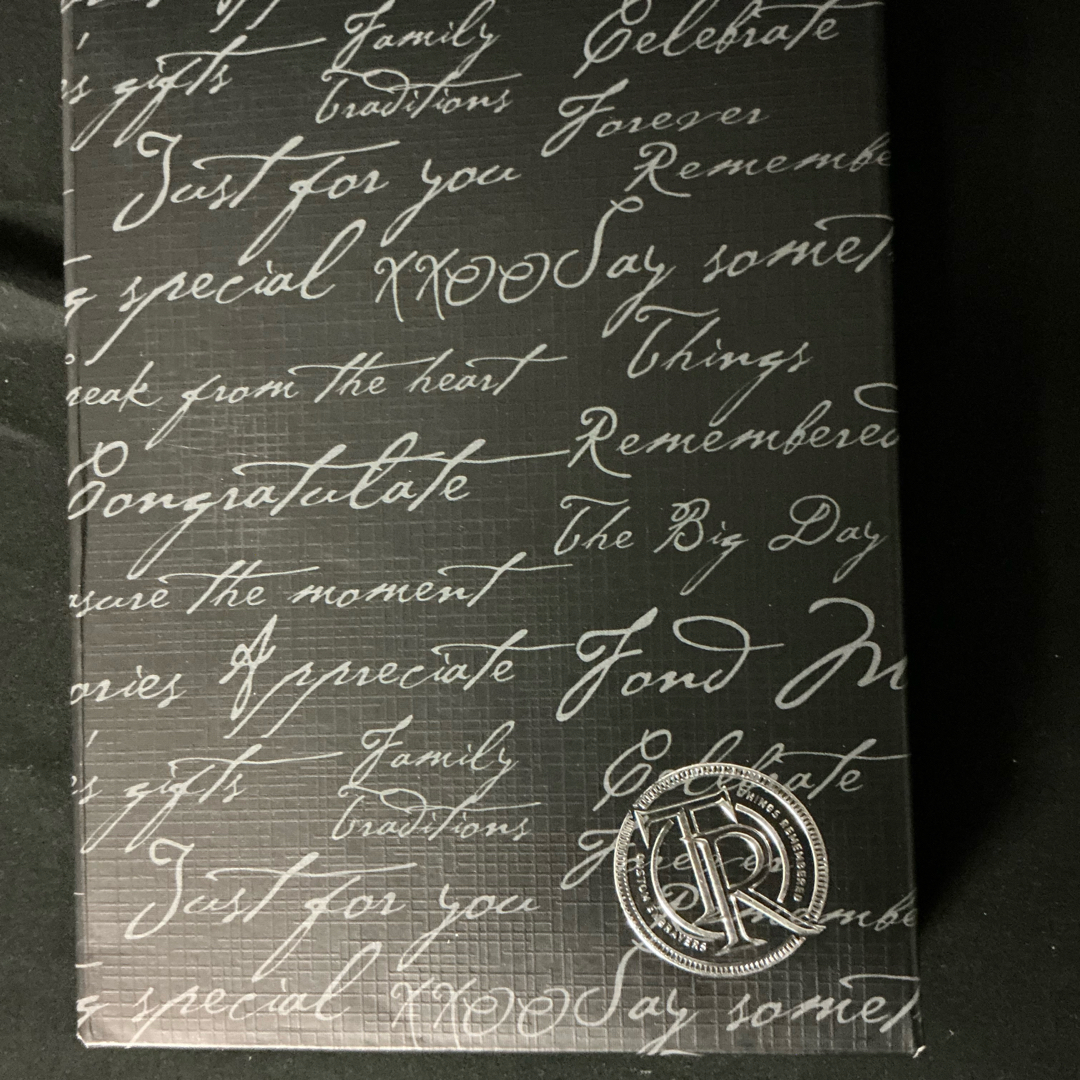 Family Celebrate
s gifts Traditions Forever
Just for you Remembe
g special XXOO Say somet
Things
reak from the heart
Remembered
Congratulate
The Big Day
asure the moment
ories Appreciate Fond M
Family Celebrate
s gifts Traditions Forever
Just for you Remembe
TR
THINGS REMEMBERED
CUSTOM ENGRAVERS
g special XXOO Say somet